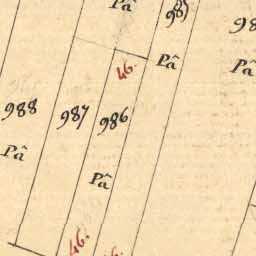 Pâ
985
98
46.
Pâ
Pâ
988
987
986
Pâ
Pâ
46.